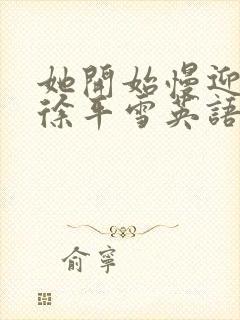 她開始慢迎
徐年雪英語
俞寧